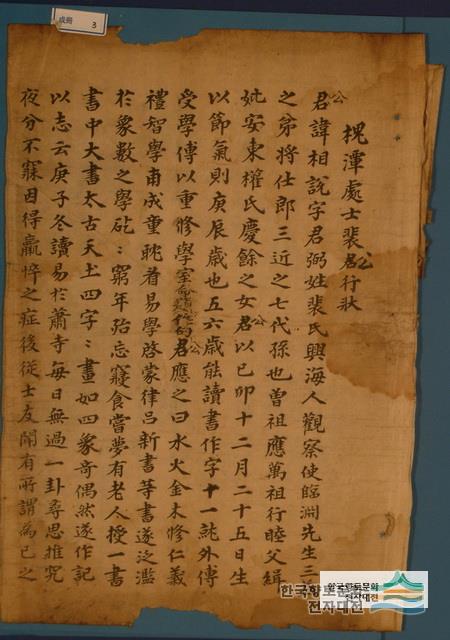 成冊 3
槐潭處士裴公行狀
公諱相說字君弼姓裴氏興海人觀察使臨淵先生三益
之弟將仕郎三近之七代孫也曾祖應萬祖行睦父緝
妣安東權氏慶餘之女公以己卯十二月二十五日生
以節氣則庚辰歲也五六歲能讀書作字十一就外傅
受學傅以重修學室命題公應之曰水火金木修仁義
禮智學甫成童耽看易學啓蒙律呂新書等書遂泛濫
於象數之學矻〻窮年殆忘寢食嘗夢有老人授一書
書中大書太古天土四字〻畫如四象奇偶然遂作記
以志云庚子冬讀易於蕭寺每日無過一卦尋思推究
夜分不寐因得羸悴之症後從士友聞有所謂爲己之
한국향토문화
전자대전
한국향토문화
전자대전